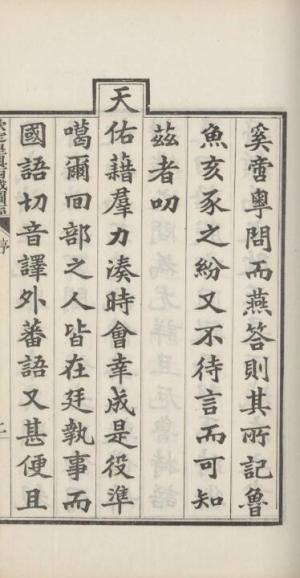 奚啻粵問而燕答則其所記魯
魚亥豕之紛又不待言而可知
茲者叨
天佑藉羣力湊時會幸成是役準
噶爾回部之人皆在廷執事而
國語切音譯外蕃語又甚便且
序